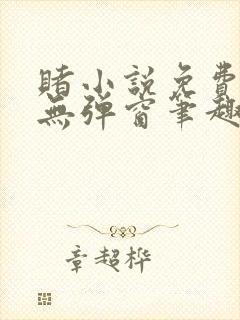 賭小説免費
無彈窗筆趣
章超桦